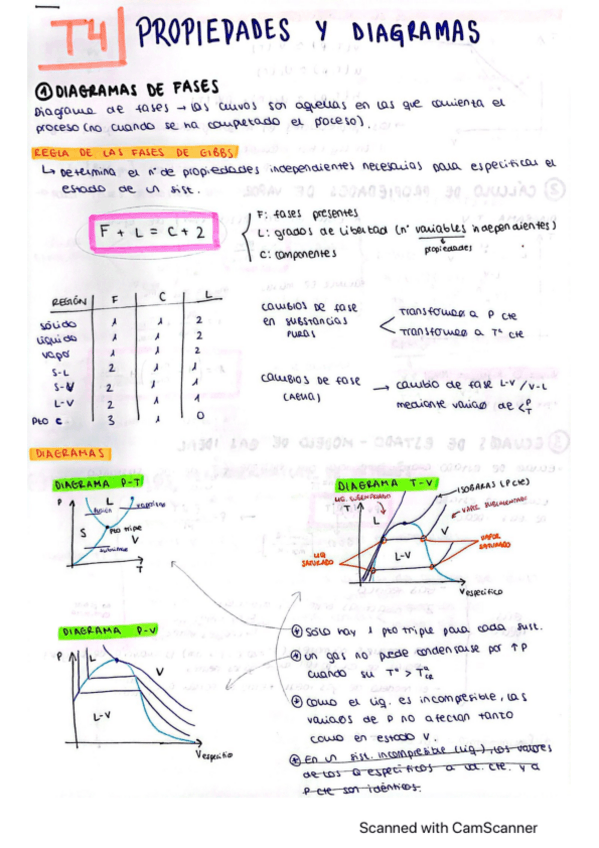 T4 PROPIEDADES Y DIAGRAMAS
① DIAGRAMAS DE FASES
Diagrama de fases → las curvas son aquellas en las que comienta el
proceso (no cuando se ha completado el proceso).
REGLA DE LAS FASES DE GIBBS
↳ Determina el nº de propiedades independientes necesarias para especificar el
estado de un sist.
F + L = C + 2
F: fases presentes
L: grados de libertad (nº variables independientes)
propiedades
C: componentes
REGIÓN F C L
sólido 1 1 2
líquido 1 1 2
vapor 1 1 2
S-L 2 1 1
S-V 2 1 1
L-V 2 1 1
Pto C 3 1 0
CAMBIOS DE FASE
EN SUBSTANCIAS
PURAS
Transformac a P cte
Transformac a Tª cte
CAMBIOS DE FASE
(AGUA)
→ cambio de fase L-V / V-L
mediante variac de P
T
DIAGRAMAS
DIAGRAMA P-T
P
L
fusión
vaporizac
S
Pto triple
V
sublimac
T
DIAGRAMA T-V
LIQ. SUBENFRIADO
ISOBARAS (P cte)
T
L
VAPOR SOBRECALENTADO
V
L-V
LIQ
SATURADO
VAPOR
SATURADO
V específico
DIAGRAMA P-V
P
L
V
L-V
V específico
Sólo hay 1 pto triple para cada sust.
Un gas no puede condensarse por ↑P
cuando su Tª > Tª cr
Como el liq. es incompresible, las
variacs de P no afectan tanto
como en estado V.
En un sist. incompresible (liq.), los valores
de los Q específicos a vol. cte. y a
P cte son idénticos.
Scanned with CamScanner